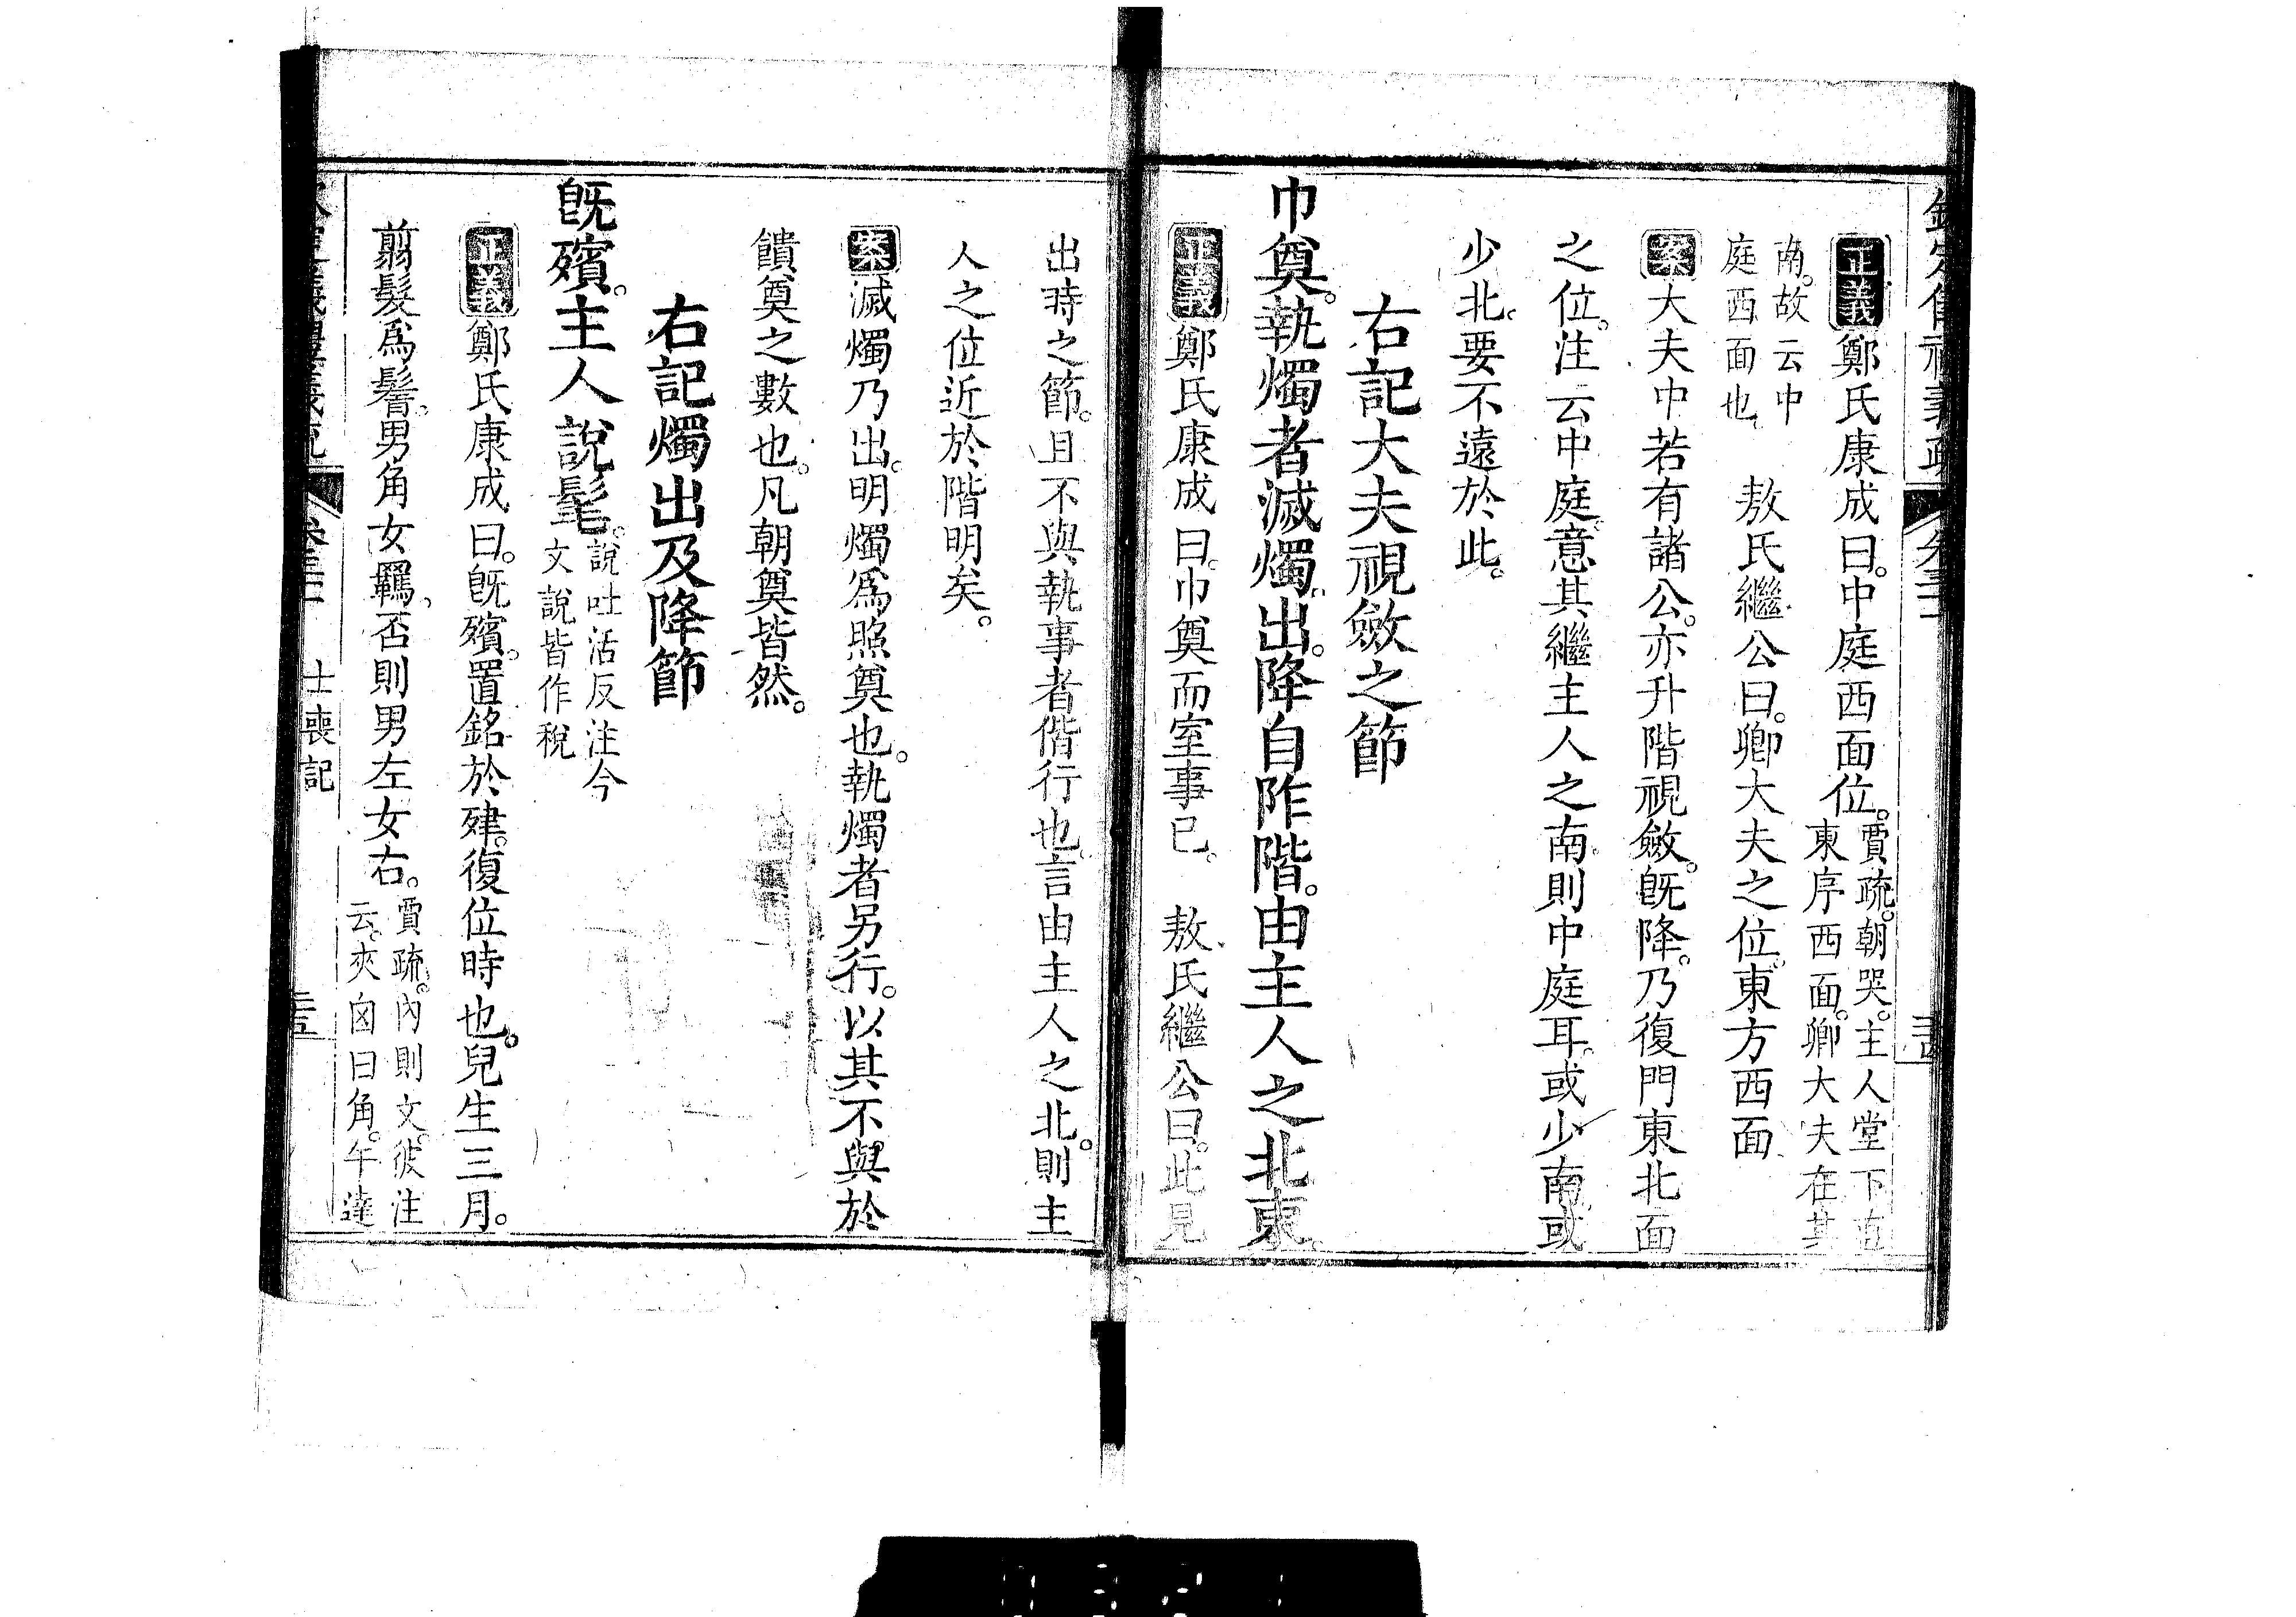 正義鄭氏康成曰。中庭西面位。賈疏。朝哭。主人堂下直東序西面。卿大夫在其
南。故云中庭西面也　敖氏繼公曰。卿大夫之位。東方西面
案大夫中若有諸公。亦升階視斂。旣降。乃復門東北面
之位。注云中庭。意其繼主人之南。則中庭耳。或少南或
少北。要不遠於此。
右記大夫視斂之節
巾奠。執燭者滅燭。出。降自阼階。由主人之北東。
正義鄭氏康成曰。巾奠而室事已。　敖氏繼公曰。此見
出時之節。且不與執事者偕行也。言由主人之北。則主
人之位近於階明矣。
案滅燭乃出。明燭爲照奠也。執燭者另行。以其不與於
饋奠之數也。凡朝奠皆然。
右記燭出及降節
旣殯。主人說髦。說吐活反注今文說皆作稅
正義鄭氏康成曰。旣殯。置銘於肂。復位時也。兒生三月。
翦髮爲鬌。男角女羈。否則男左女右。賈疏。內則文。彼注云。夾囟曰角。午達
士喪記